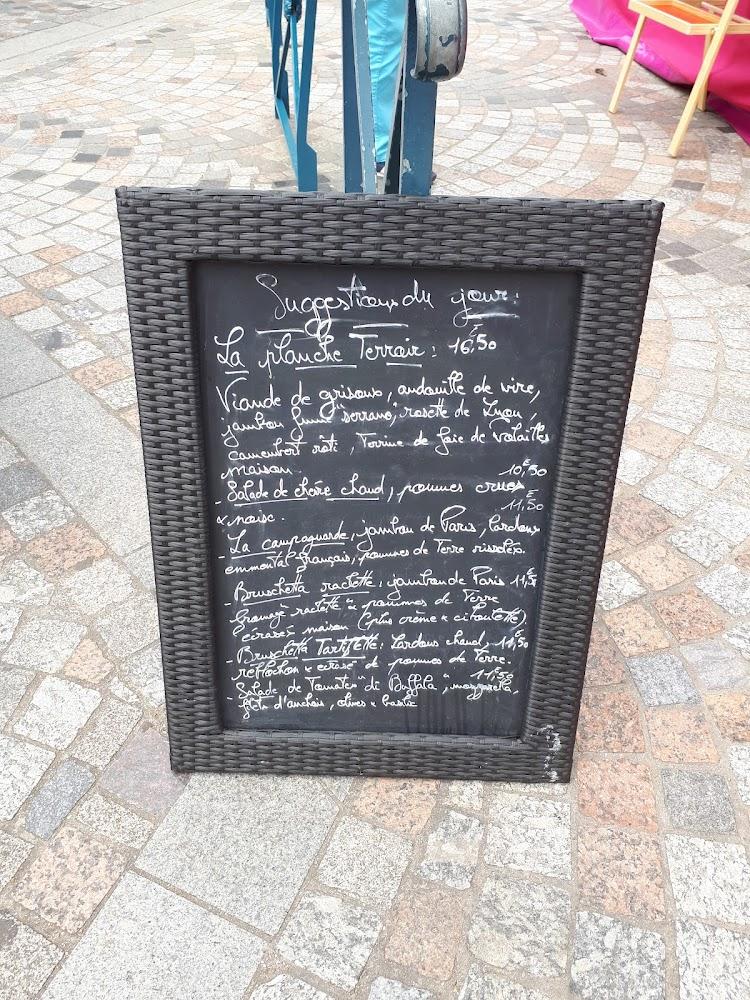 Suggestions du jour:
La planche Terroir: 16,€50
Viande de grisons, andouille de vire,
jambon fumé "serrano", rosette de Lyon,
camembert rôti, Terrine de foie de volailles
maison.
10,€50
- Salade de chèvre chaud, pommes crues
11,€50
& noix.
- La campagnarde, jambon de Paris, lardons
emmental français, pommes de Terre rissolés.
- Bruschetta raclette: jambon de Paris 11,€5
fromage raclette & pommes de Terre
écrasés maison (plus crème & ciboulette).
- Bruschetta Tartiflette: Lardons chaud, 11,€50
réblochon & écrasé de pommes de Terre.
11,€50
Salade de Tomates "di Buffala", mozzarella,
filets d'anchois, olives & basilic